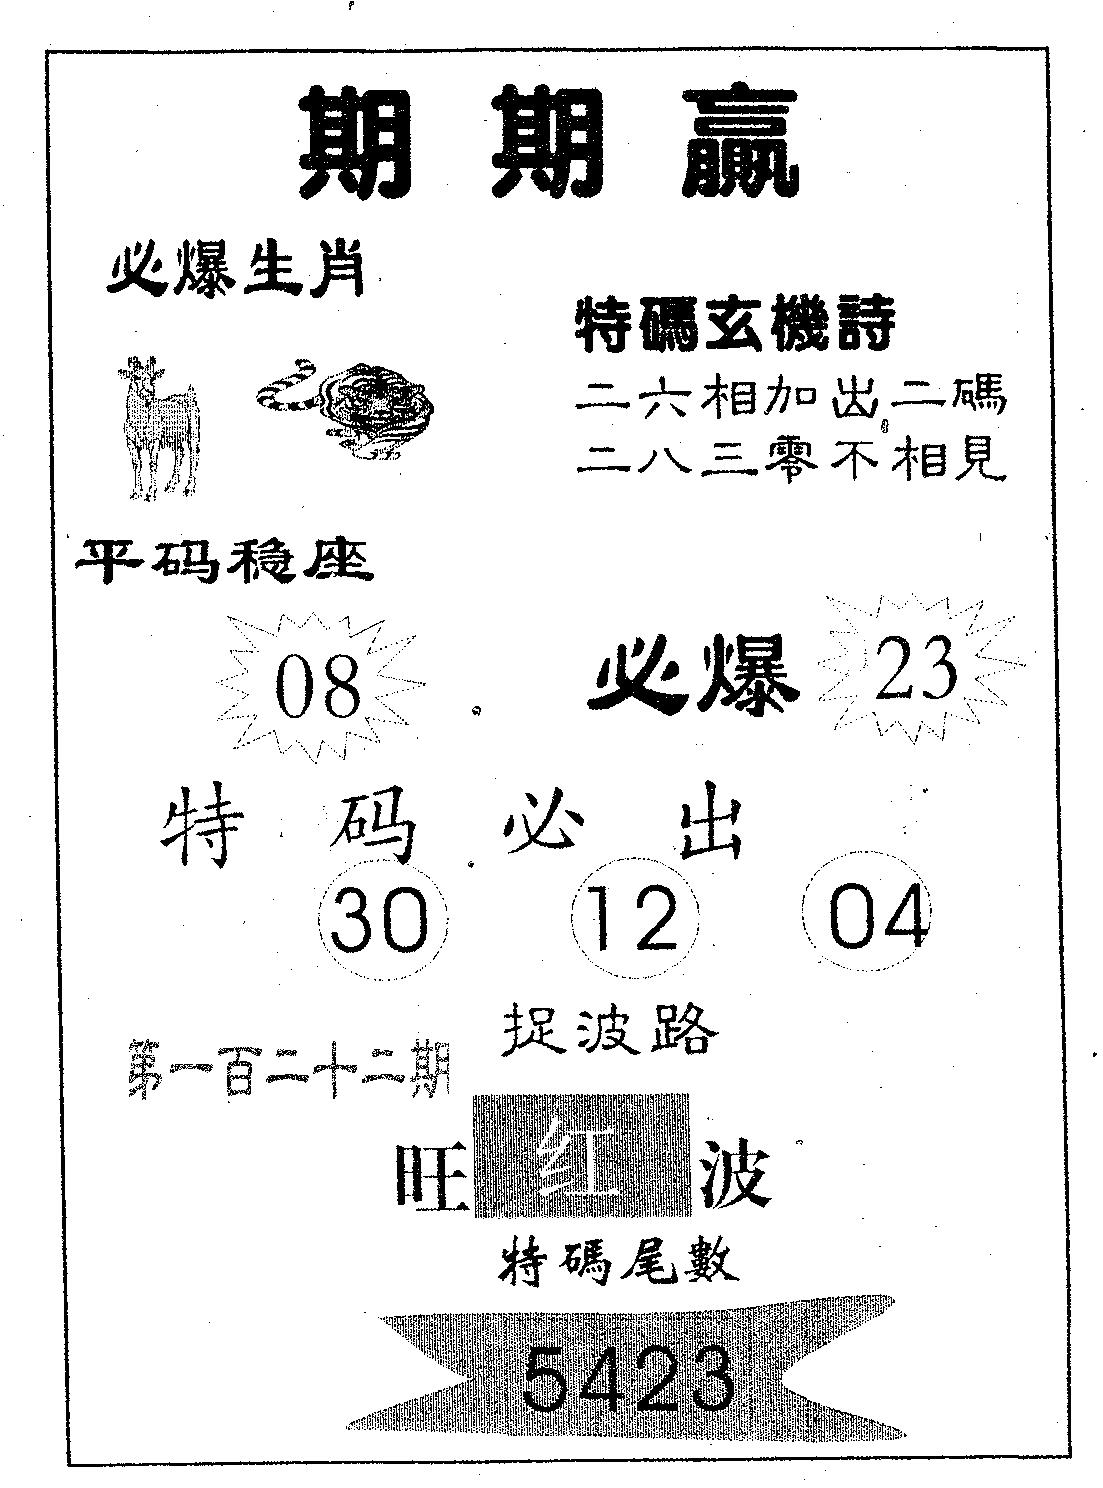 期期赢
必爆生肖
特碼玄機詩
二六相加出二碼
二八三零不相見
平码稳座
08
必爆 23
特码必出
30 12 04
捉波路
第一百二十二期
旺红波
特碼尾數
5423